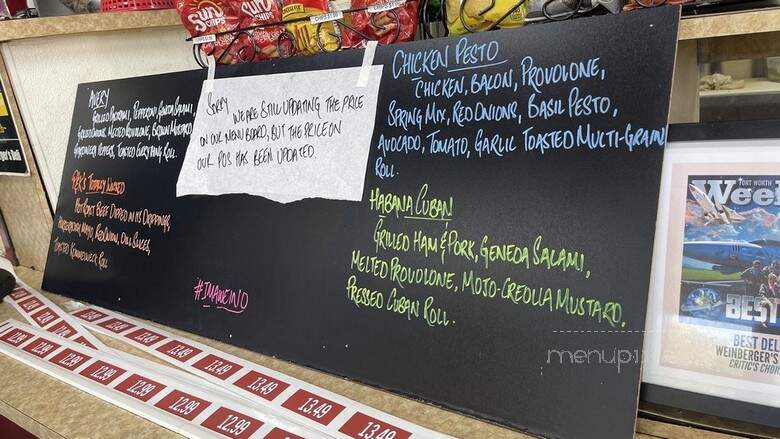 SUN
CHIPS
SUN
CHIPS
AVERY
GRILLED PASTRAMI, PEPPERONI, GENOA SALAMI,
GRILLED ONIONS, MELTED PROVOLONE, BROWN MUSTARD,
PEPPERS, TOASTED EVERYTHING ROLL.
TOTALLY
HOT ROAST BEEF DIPPED IN ITS DRIPPINGS
MAYO, RED ONION, DILL SLICES,
TOASTED ROLL
#IMAWEINO
SORRY
WE ARE STILL UPDATING THE PRICE
ON OUR MENU BOARD, BUT THE PRICE ON
OUR POS HAS BEEN UPDATED.
CHICKEN PESTO
CHICKEN, BACON, PROVOLONE,
SPRING MIX, RED ONIONS, BASIL PESTO,
AVOCADO, TOMATO, GARLIC TOASTED MULTI-GRAIN
ROLL.
HABANA CUBAN
GRILLED HAM & PORK, GENEOA SALAMI,
MELTED PROVOLONE, MOJO-CREOLLA MUSTARD,
PRESSED CUBAN ROLL.
menupix
FORT WORTH
Wee
BEST
BEST DEL
WEINBERGER'S
CRITIC'S CHOI
13.49
13.49
13.49
13.49
13.49
13.49
12.99
12.99
12.99
12.99
12.99
12.99
12.99